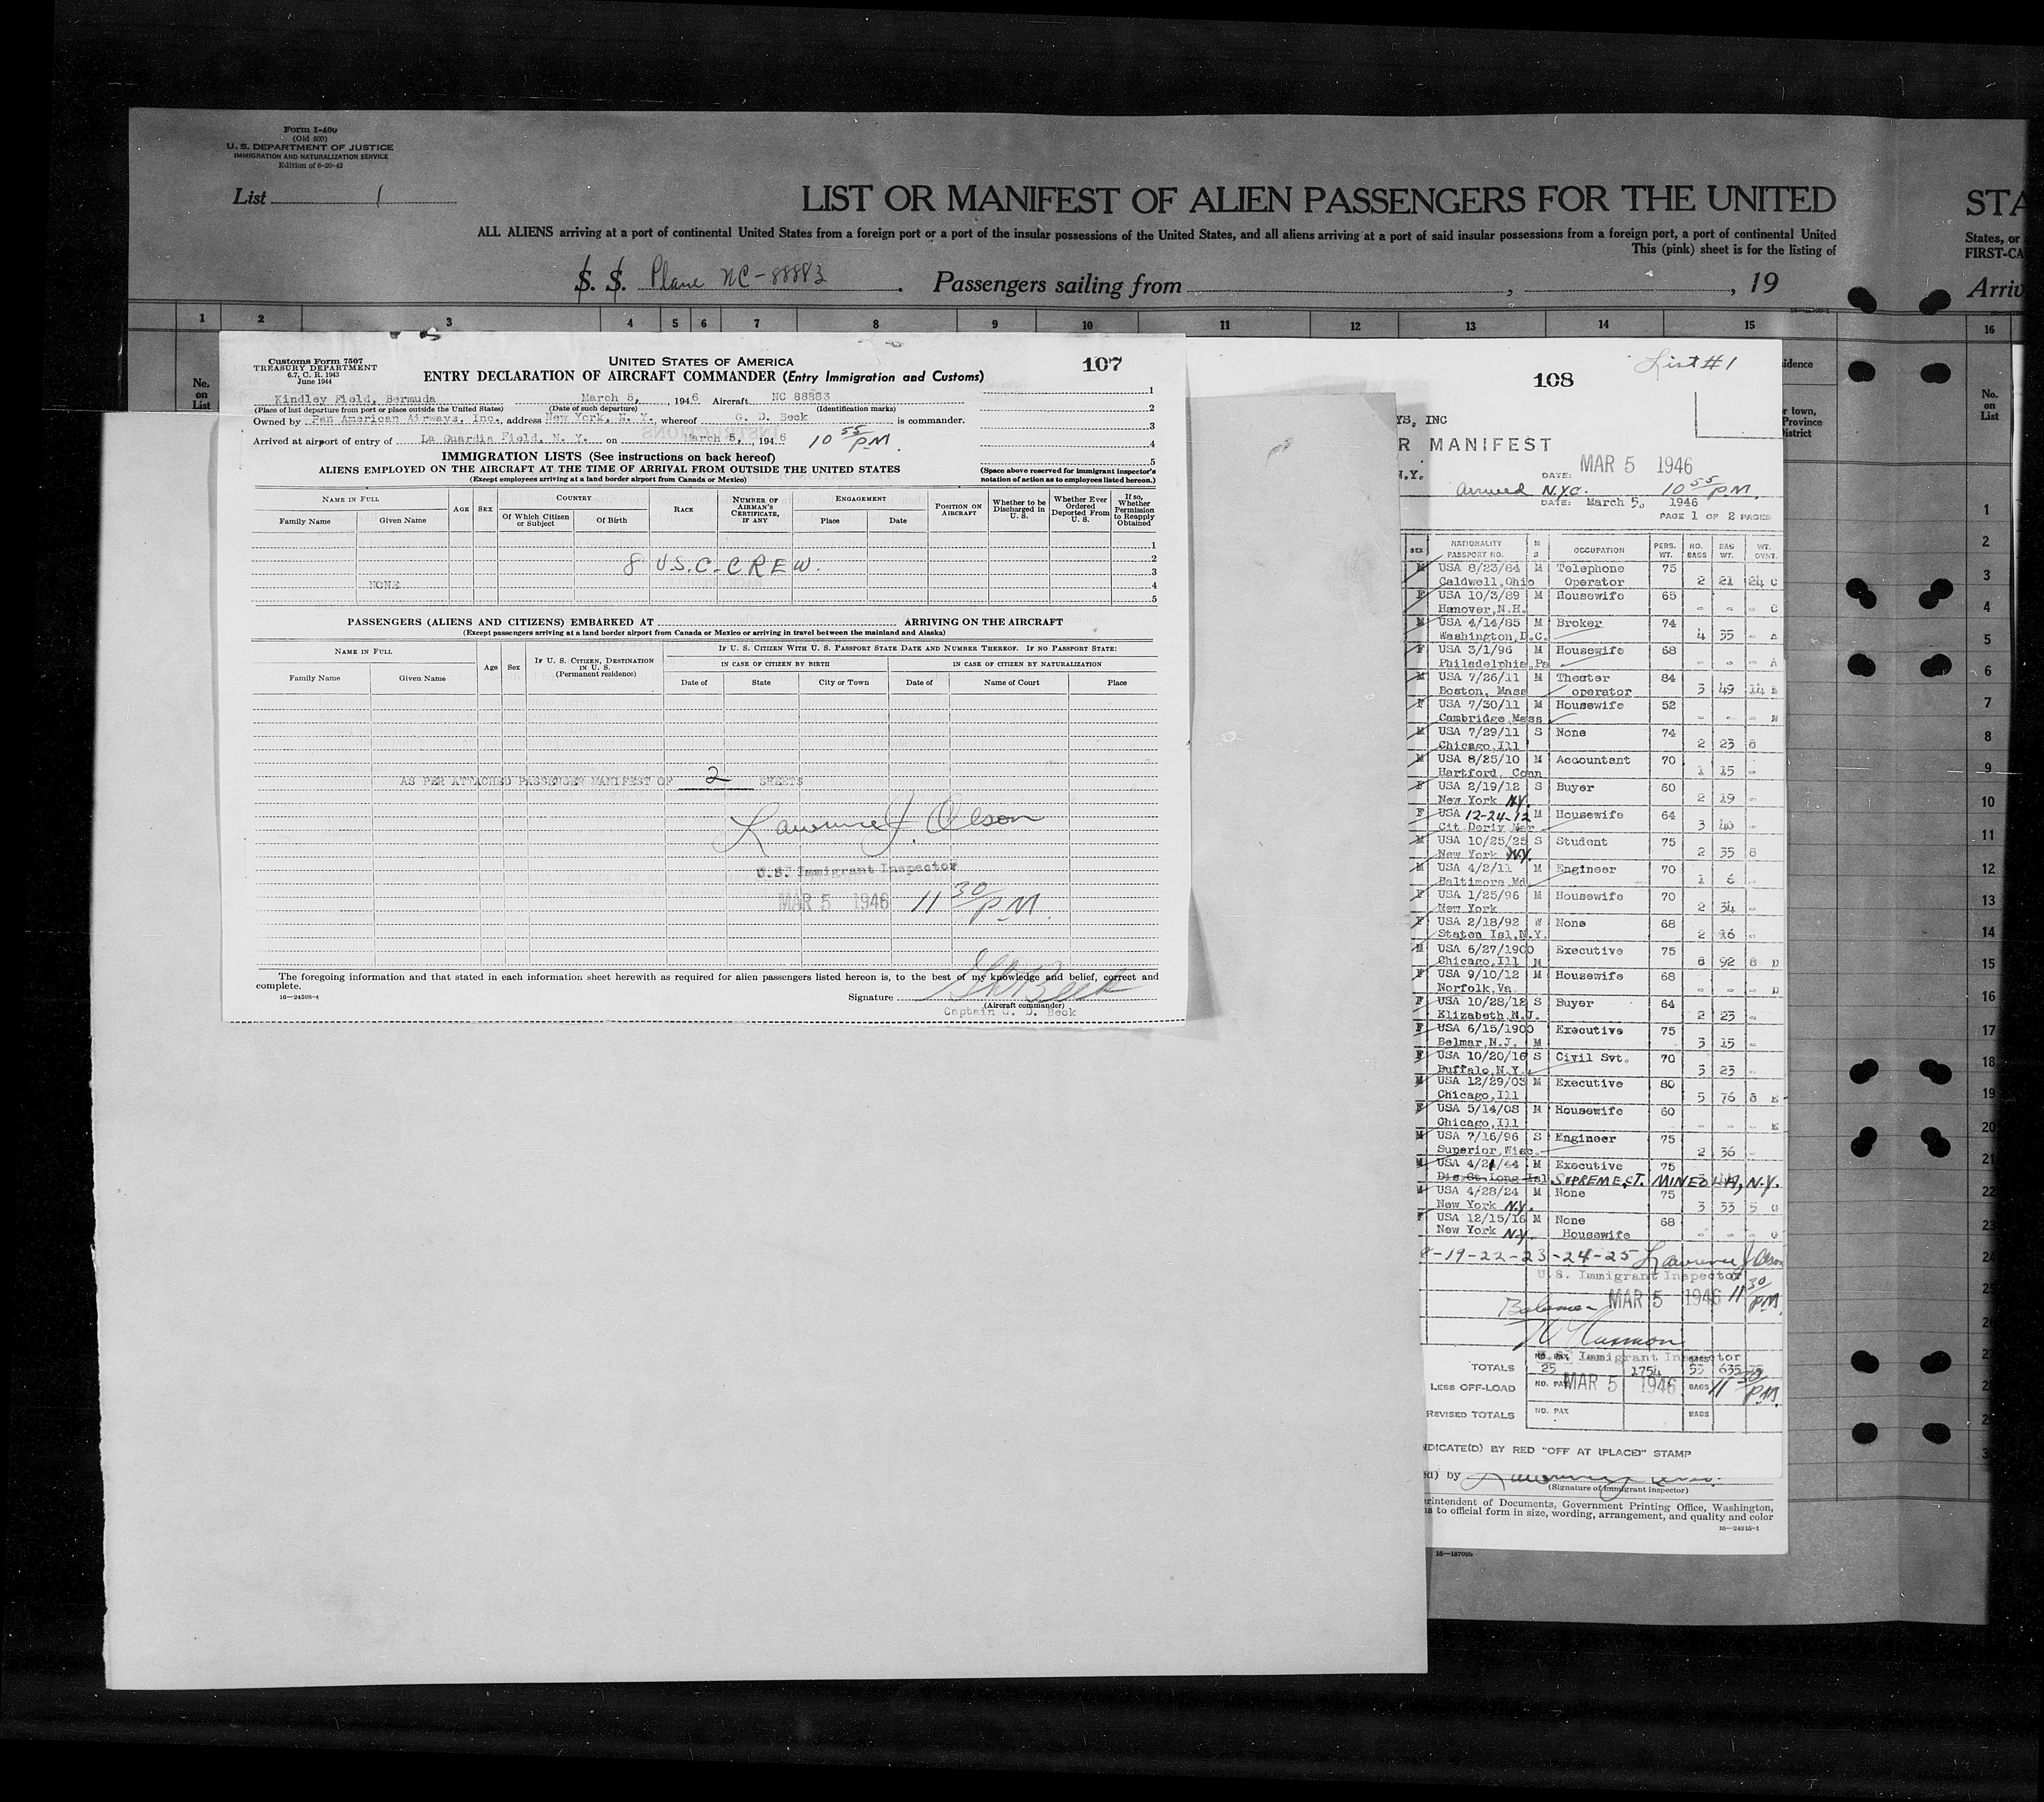 Form I-400
(Old 500)
U. S. DEPARTMENT OF JUSTICE
IMMIGRATION AND NATURALIZATION SERVICE
Edition of 6-20-42
List 1
LIST OR MANIFEST OF ALIEN PASSENGERS FOR THE UNITED
STA
ALL ALIENS arriving at a port of continental United States from a foreign port or a port of the insular possessions of the United States, and all aliens arriving at a port of said insular possessions from a foreign port, a port of continental United
States, or
This (pink) sheet is for the listing of
FIRST-CA
S. S. Plane NC-88883. Passengers sailing from , , 19
Arriv
1 2 3 4 5 6 7 8 9 10 11 12 13 14 15 16
No.
on
List
Customs Form 7507
TREASURY DEPARTMENT
6.7, C. R. 1943
June 1944
UNITED STATES OF AMERICA
107
ENTRY DECLARATION OF AIRCRAFT COMMANDER (Entry Immigration and Customs)
Kindley Field, Bermuda March 5, , 1946 Aircraft NC 88883
(Place of last departure from port or place outside the United States) (Date of such departure) (Identification marks)
Owned by Pan American Airways, Inc. address New York, N. Y. whereof G. D. Beck is commander.
Arrived at airport of entry of La Guardia Field, N. Y. on March 5, , 1946 10 55 PM.
1
2
3
4
5
IMMIGRATION LISTS (See instructions on back hereof)
ALIENS EMPLOYED ON THE AIRCRAFT AT THE TIME OF ARRIVAL FROM OUTSIDE THE UNITED STATES
(Except employees arriving at a land border airport from Canada or Mexico)
(Space above reserved for immigrant inspector's
notation of action as to employees listed hereon.)
NAME IN FULL
Family Name Given Name
AGE SEX
COUNTRY
Of Which Citizen or Subject Of Birth
RACE
NUMBER OF AIRMAN'S CERTIFICATE, IF ANY
ENGAGEMENT
Place Date
POSITION ON AIRCRAFT
Whether to be Discharged in U. S.
Whether Ever Ordered Deported From U. S.
If so, Whether Permission to Reapply Obtained
1
8 U.S.C. CREW. 2
3
NONE 4
5
PASSENGERS (ALIENS AND CITIZENS) EMBARKED AT ARRIVING ON THE AIRCRAFT
(Except passengers arriving at a land border airport from Canada or Mexico or arriving in travel between the mainland and Alaska)
NAME IN FULL
Family Name Given Name
Age Sex
IF U. S. CITIZEN, DESTINATION IN U. S.
(Permanent residence)
IF U. S. CITIZEN WITH U. S. PASSPORT STATE DATE AND NUMBER THEREOF. IF NO PASSPORT STATE:
IN CASE OF CITIZEN BY BIRTH IN CASE OF CITIZEN BY NATURALIZATION
Date of State City or Town Date of Name of Court Place
AS PER ATTACHED PASSENGER MANIFEST OF 2 SHEETS
Lawrence J. Olson
U.S. Immigrant Inspector
MAR 5 1946 11 30 PM.
The foregoing information and that stated in each information sheet herewith as required for alien passengers listed hereon is, to the best of my knowledge and belief, correct and
complete.
16—24508-4
Signature G D Beck
(Aircraft commander)
Captain G. D. Beck
108
List #1
YS, INC
R MANIFEST
N.Y.
DATE: MAR 5 1946
Arrived N.Y.C. 10 55 PM.
DATE: March 5, 1946
PAGE 1 OF 2 PAGES
SEX NATIONALITY PASSPORT NO. M S OCCUPATION PERS. WT. NO. BAGS BAG WT. WT. OVWT.
M USA 8/23/84 M Telephone 75
Caldwell, Ohio Operator 2 21 24 C
F USA 10/3/89 M Housewife 65
Hanover, N.H. - - - C
M USA 4/14/85 M Broker 74
Washington, D.C. 4 35 - A
F USA 3/1/96 M Housewife 68
Philadelphia, Pa - - - A
M USA 7/26/11 M Theater 84
Boston, Mass operator 3 49 14 B
F USA 7/30/11 M Housewife 52
Cambridge Mass - - - B
M USA 7/29/11 S None 74
Chicago, Ill 2 23 8
M USA 8/25/10 M Accountant 70
Hartford, Conn 1 15 -
F USA 2/19/12 S Buyer 60
New York N.Y. 2 19 -
F USA 12-24-12 M Housewife 64
Cit Deriv Mar 3 40 -
M USA 10/25/25 S Student 75
New York N.Y. 2 35 8
M USA 4/2/11 M Engineer 70
Baltimore Md. 1 6 -
F USA 1/25/96 M Housewife 70
New York 2 34 -
F USA 2/18/92 W None 68
Staten Isl, N.Y. 2 16 -
M USA 6/27/1900 Executive 75
Chicago, Ill M 8 92 8 D
F USA 9/10/12 M Housewife 68
Norfolk, Va - - - D
F USA 10/28/12 S Buyer 64
Elizabeth N.J. 2 23 -
F USA 6/15/1900 Executive 75
Belmar, N.J. M 3 15 -
F USA 10/20/16 S Civil Svt. 70
Buffalo N.Y. 3 23 -
M USA 12/29/03 M Executive 80
Chicago, Ill 5 76 8 E
F USA 5/14/08 M Housewife 60
Chicago, Ill - - - E
M USA 7/16/96 S Engineer 75
Superior, Wisc. 2 36 -
M USA 4/21/44 M Executive 75
Dis. Ct. Long Isl SUPREME CT. MINEOLA, N.Y.
M USA 4/28/24 M None 75
New York N.Y. 3 33 5 G
F USA 12/15/16 M None 68
New York N.Y. Housewife - - - G
-19-22-23-24-25 Lawrence J Olson
U.S. Immigrant Inspector
MAR 5 1946 11 30 PM
Balance
Harmon
U.S. Immigrant Inspector
TOTALS NO. PAX 25 1754 BAGS 53 635
LESS OFF-LOAD NO. PAX MAR 5 1946 BAGS 11 30 PM.
REVISED TOTALS NO. PAX BAGS
NDICATE(D) BY RED "OFF AT (PLACE)" STAMP
ed) by
(Signature of immigrant inspector)
rintendent of Documents, Government Printing Office, Washington,
ns to official form in size, wording, arrangement, and quality and color
16—24915-1
16—18709b
idence
r town,
Province
istrict
No.
on
List
1
2
3
4
5
6
7
8
9
10
11
12
13
14
15
16
17
18
19
20
21
22
23
24
25